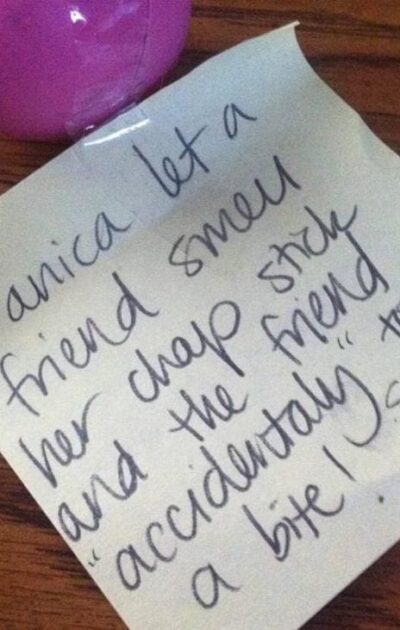 anica let a
friend smell
her chap stick
and the friend
"accidentaly"
a bite!